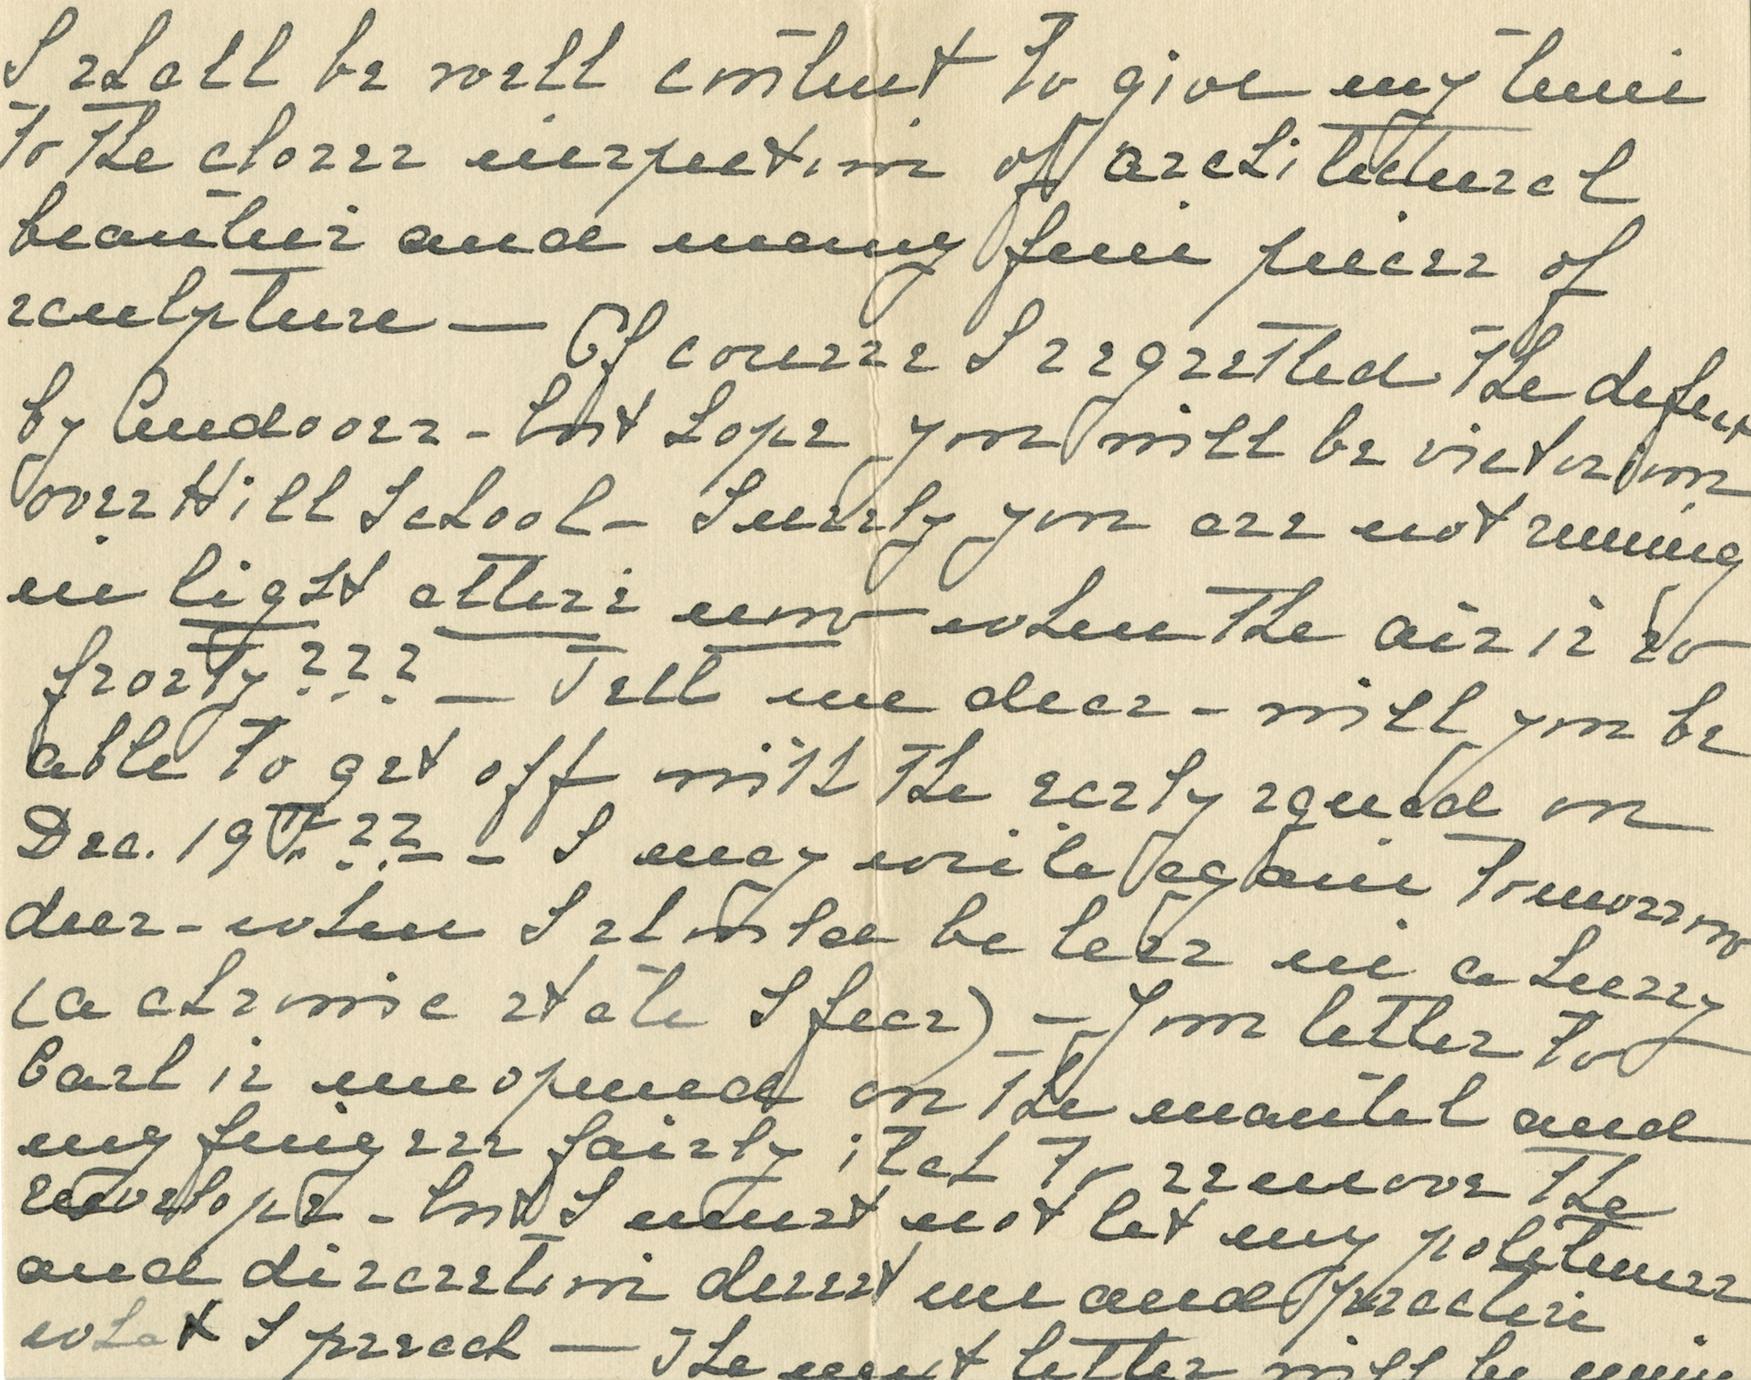 I shall be well content to give my time
to the closer inspection of architectural
beauties and many fine pieces of
sculpture — Of course I regretted the defeat
by Andover - but hope you will be victorious
over Hill School - Surely you are not running
in light attire now when the air is so
frosty ??? — Tell me dear - will you be
able to get off with the early squad on
Dec. 19th ?? - - I may write again tomorrow
dear - when I should be less in a hurry
(a chronic state I fear) - Your letter to
Carl is unopened on the mantel and
my fingers fairly itch to remove the
envelope - but I must not let my politeness
and discretion desert me and practice
what I preach — The next letter will be mine